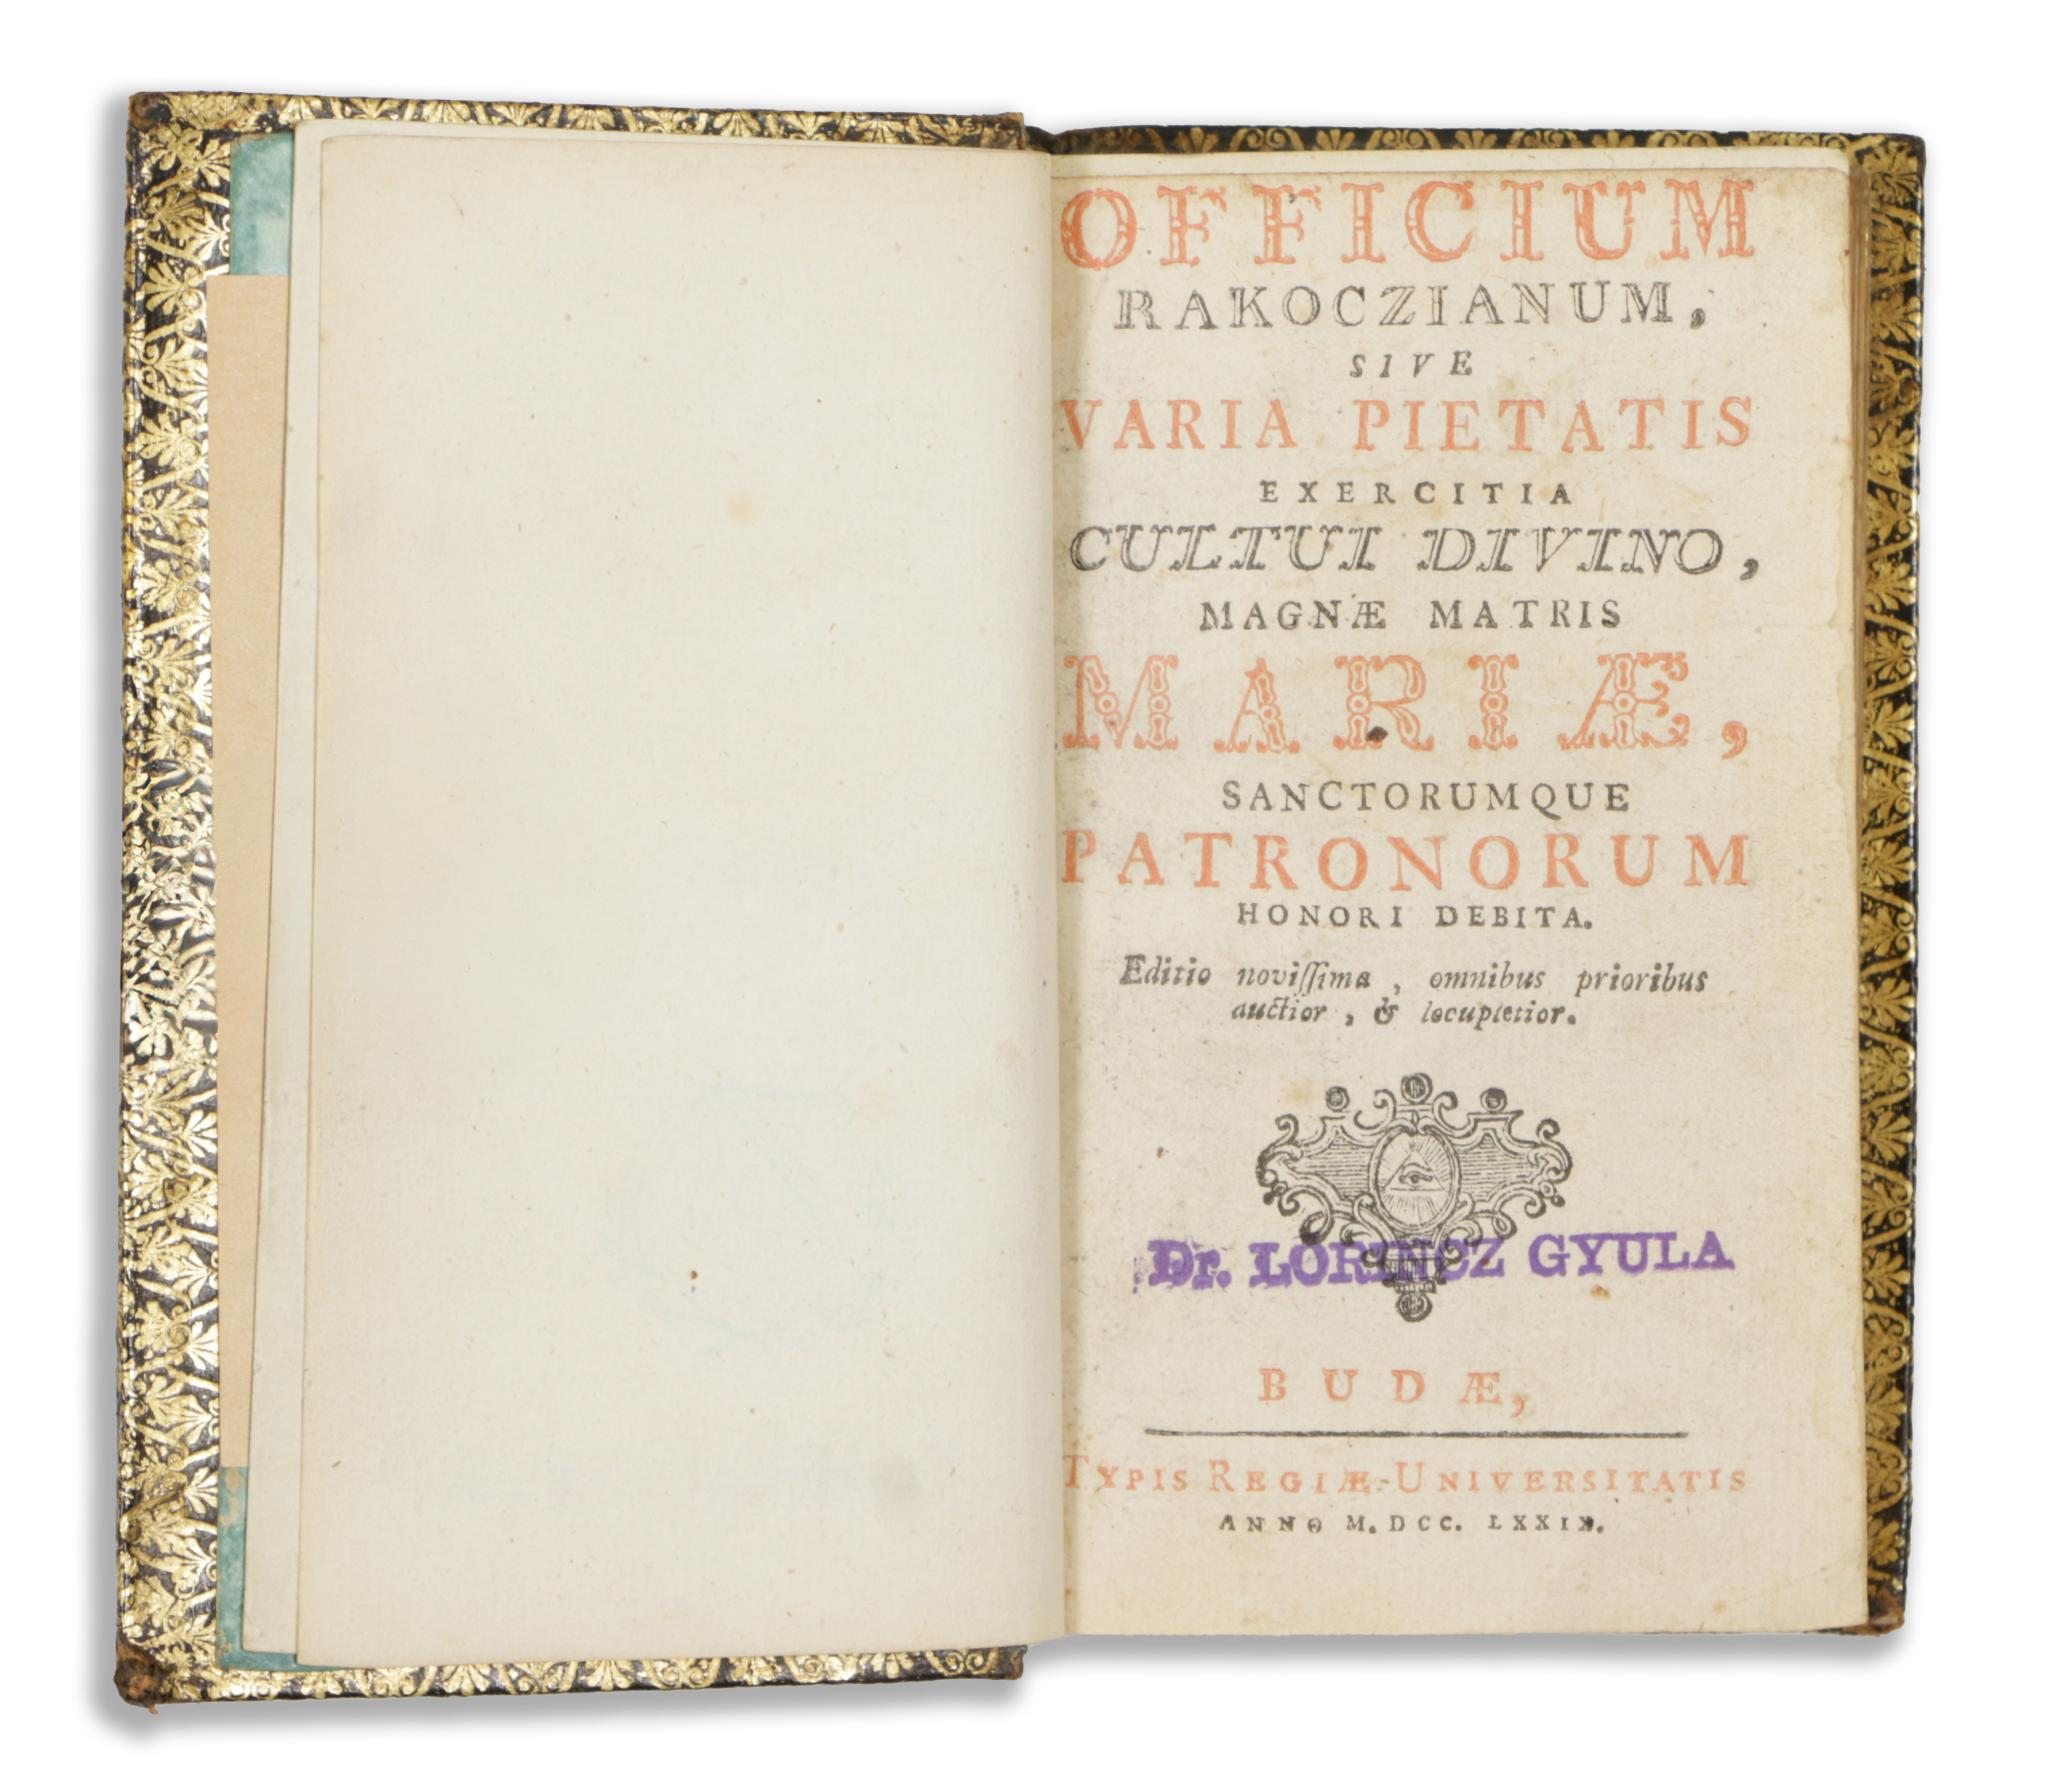 OFFICIUM
RAKOCZIANUM,
SIVE
VARIA PIETATIS
EXERCITIA
CULTUI DIVINO,
MAGNÆ MATRIS
MARIÆ,
SANCTORUMQUE
PATRONORUM
HONORI DEBITA.
Editio noviſſima, omnibus prioribus
auctior, & locupletior.
Dr. LORINCZ GYULA
BUDÆ,
TYPIS REGIÆ-UNIVERSITATIS
ANNO M. DCC. LXXIX.